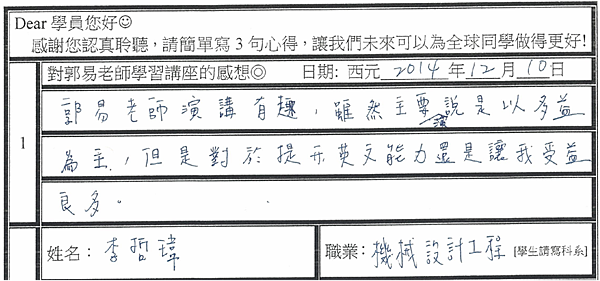 Dear 學員您好☺
感謝您認真聆聽，請簡單寫 3 句心得，讓我們未來可以為全球同學做得更好!
對郭易老師學習講座的感想◎ 日期: 西元 2014 年 12 月 10 日
1
郭易老師演講有趣，雖然主要演說是以多益
為主，但是對於提升英文能力還是讓我受益
良多。
姓名： 李哲瑋 職業： 機械設計工程 [學生請寫科系]